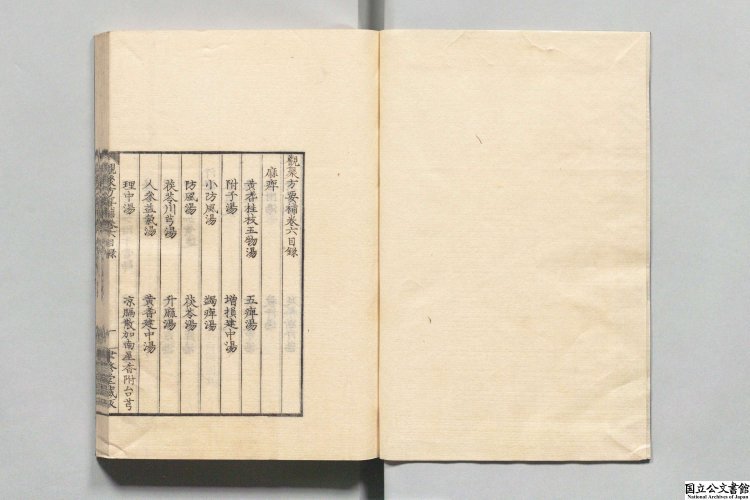 觀聚方要補卷六目錄
麻痺
黃耆桂枝五物湯
五痺湯
附子湯
增損建中湯
小防風湯
蠲痺湯
防風湯
茯苓湯
茯苓川芎湯
升麻湯
人參益氣湯
黃耆建中湯
理中湯
凉膈散加南星香附台芎
觀聚方要補卷六目錄
國立公文書館
National Archives of Japan